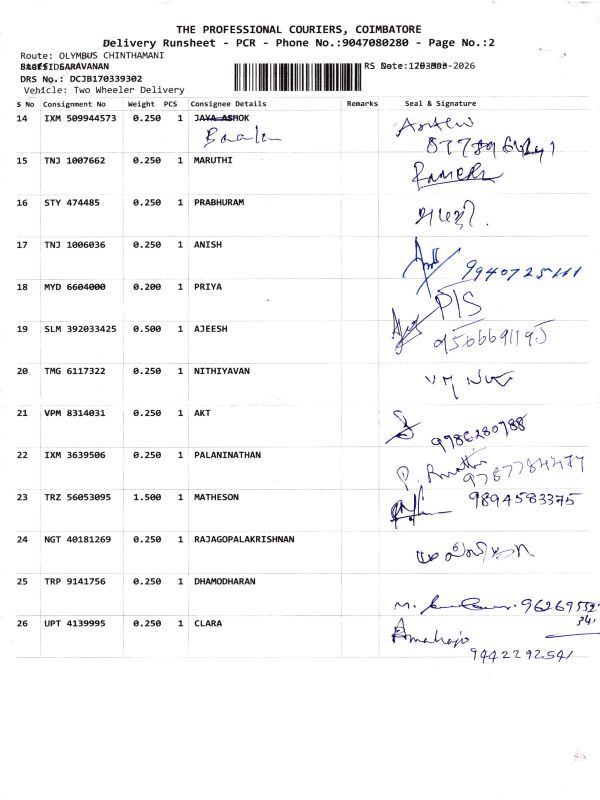 THE PROFESSIONAL COURIERS, COIMBATORE
Delivery Runsheet - PCR - Phone No.:9047080280 - Page No.:2
Route: OLYMBUS CHINTHAMANI
SARAVANAN
DRS No.: DCJB170339302
Vehicle: Two Wheeler Delivery
S No Consignment No Weight PCS Consignee Details Remarks Seal & Signature
14 IXM 509944573 0.250 1 JAYA ASHOK
15 TNJ 1007662 0.250 1 MARUTHI
Ramesh
16 STY 474485 0.250 1 PRABHURAM
17 TNJ 1006036 0.250 1 ANISH
18 MYD 6604000 0.200 1 PRIYA
P/S
19 SLM 392033425 0.500 1 AJEESH
9566691195
20 TMG 6117322 0.250 1 NITHIYAVAN
21 VPM 8314031 0.250 1 AKT
9786280788
22 IXM 3639506 0.250 1 PALANINATHAN
23 TRZ 56053095 1.500 1 MATHESON
9894583375
24 NGT 40181269 0.250 1 RAJAGOPALAKRISHNAN
25 TRP 9141756 0.250 1 DHAMODHARAN
26 UPT 4139995 0.250 1 CLARA
9442292541